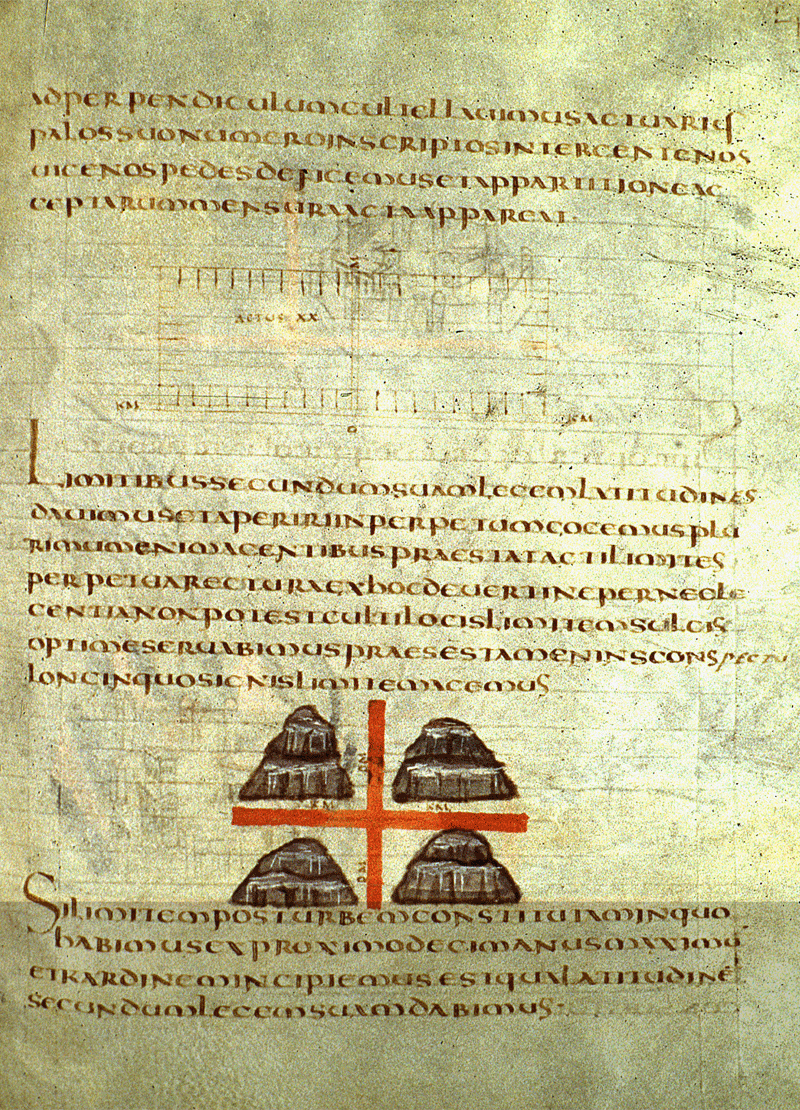 adperpendiculumcultellauimusactuariis
palossuonumeroinscriptosintercentenos
uicenospedesdefigemusetappartitioneac
ceptarummensuraactaappareat
K M
actus XX
K M
K M
Limitibussecundumsuamlegemlatitudines
dauimusetapeririinperpetumcogemusplu
rimumenimagentibuspraestatactilimites
perpetuarecturaexhocdeuertinepernegle
gentianonpotestcultilocislimitemsulcis
optimeseruabimuspraesestameninsconspectu
longinquosignislimitemagemus
DM
KM
KM
DM
Silimitemposturbemconstitutaminquo
habimusexproximodecimanusmaximu
etkardinemincipiemusestqualatitudine
secundumlegemsuamdabimus